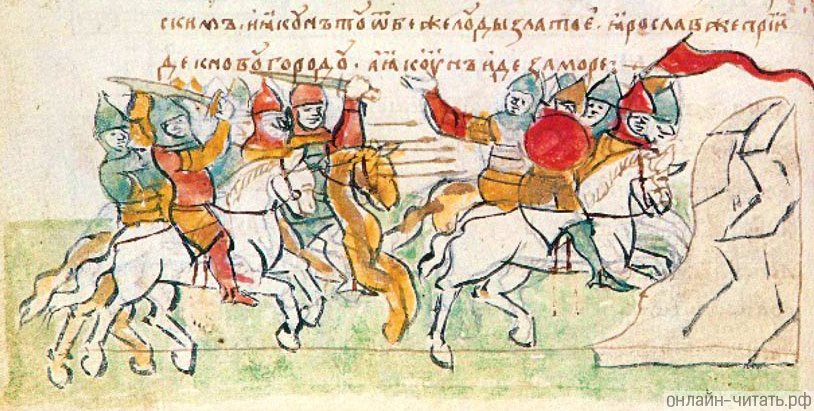 скимъ · и ꙗконъ тоѿбежелоудызлатꙑе · ꙗрославжеприи
декновоугородоу · аꙗкоунъидезаморе ·
онлайн-читать.рф